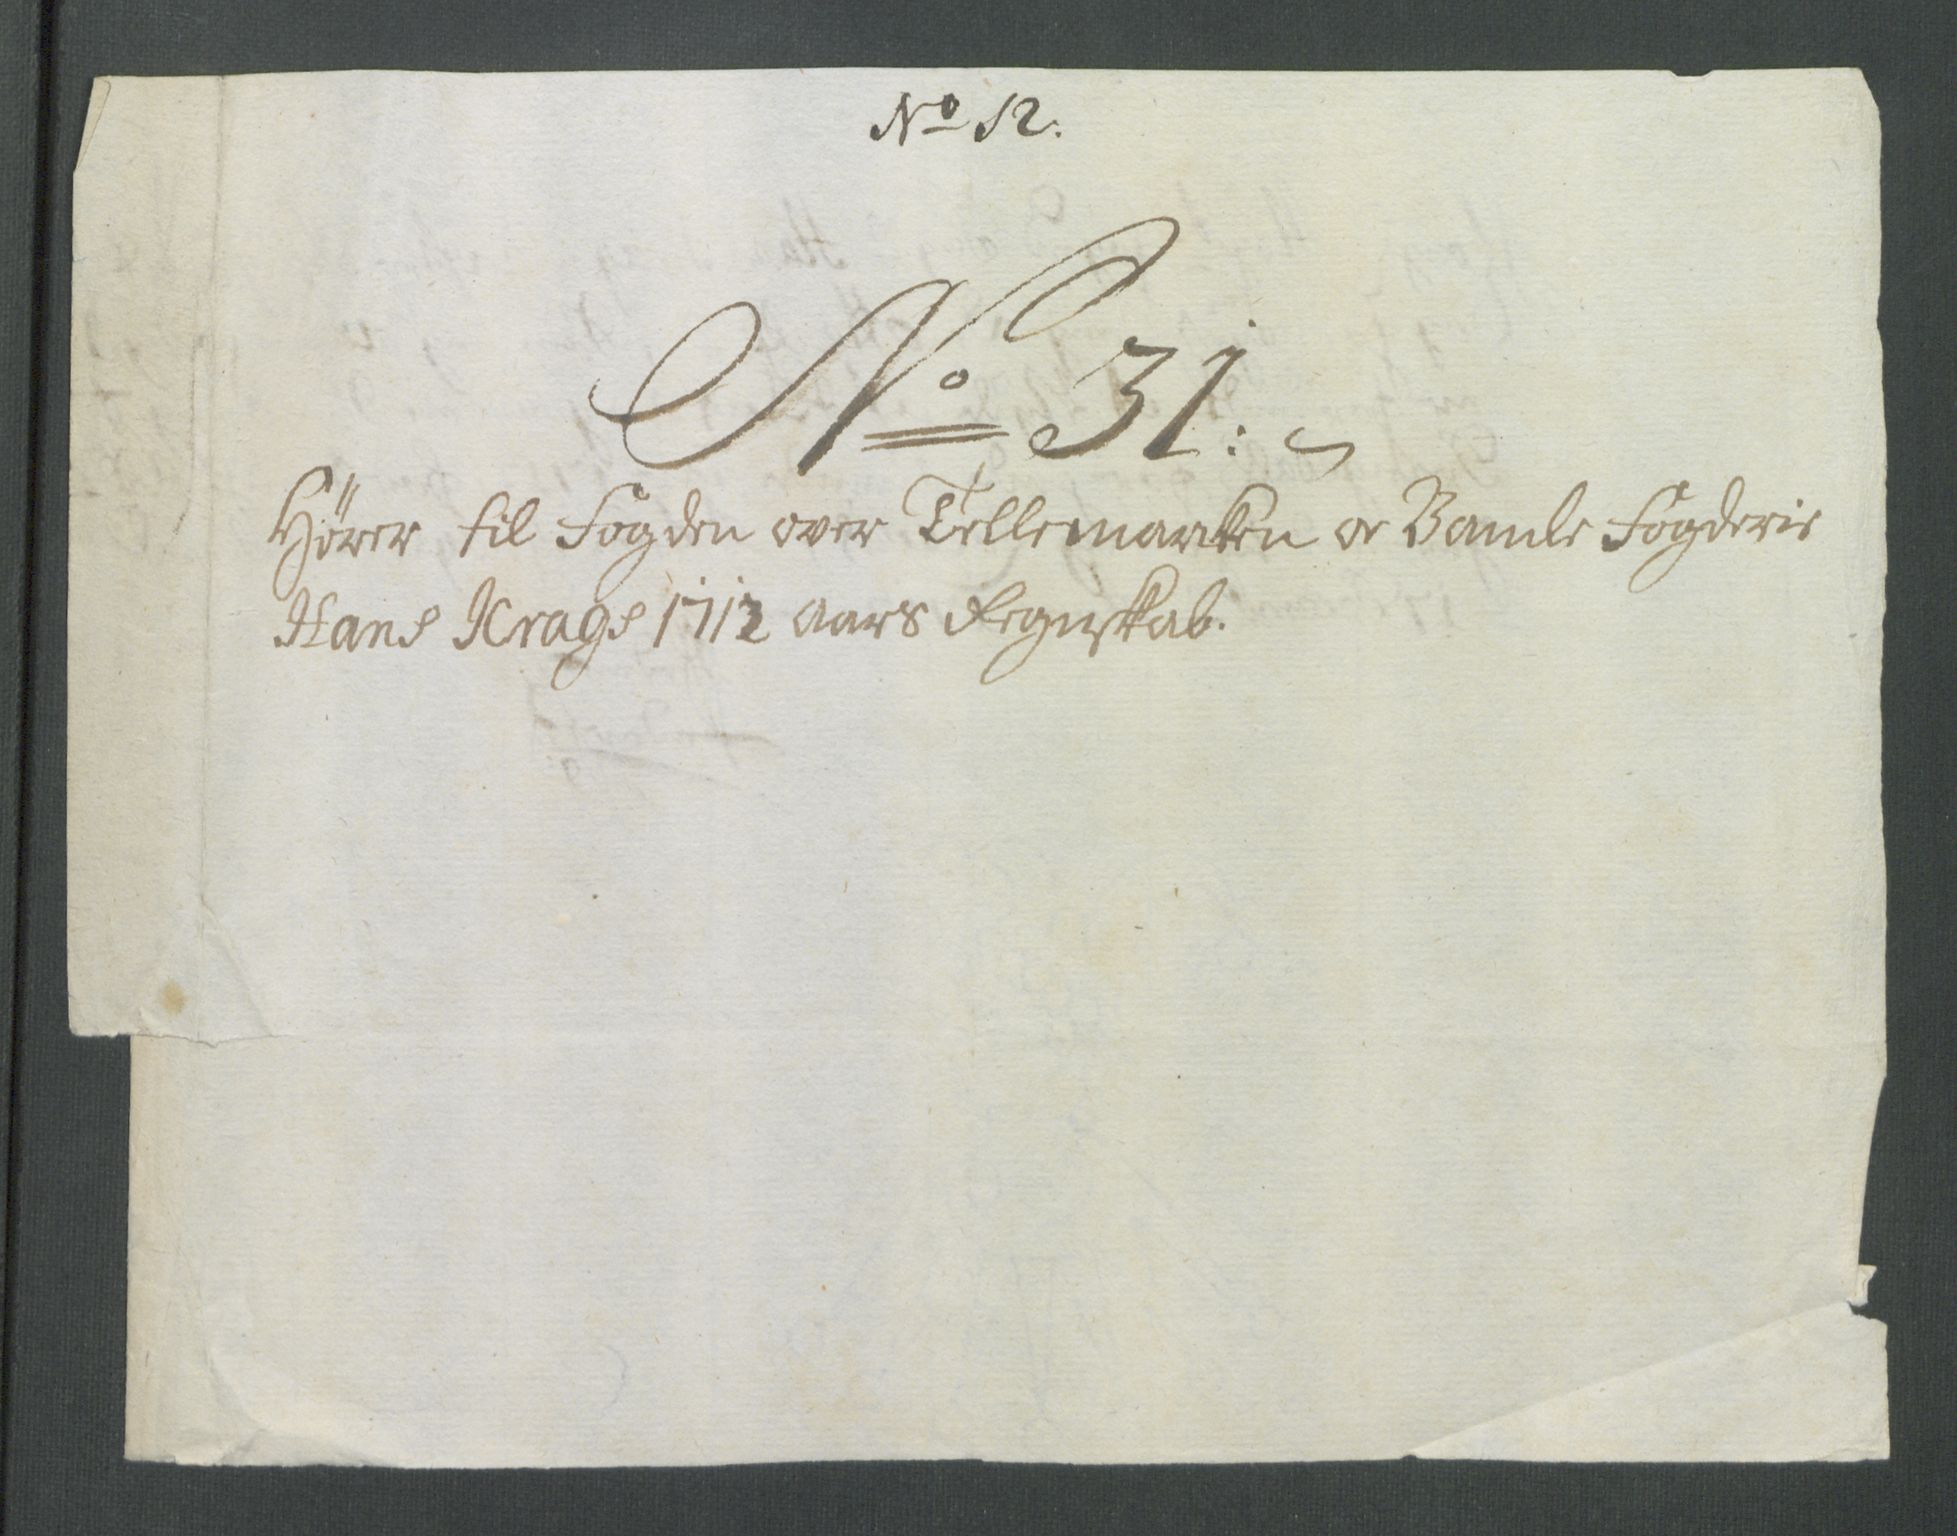 No 12.
No 31:
Hører til Fogden over Tellemarken oc Bamle Fogderie
Hans Krags 1712 Aars Regnskab.